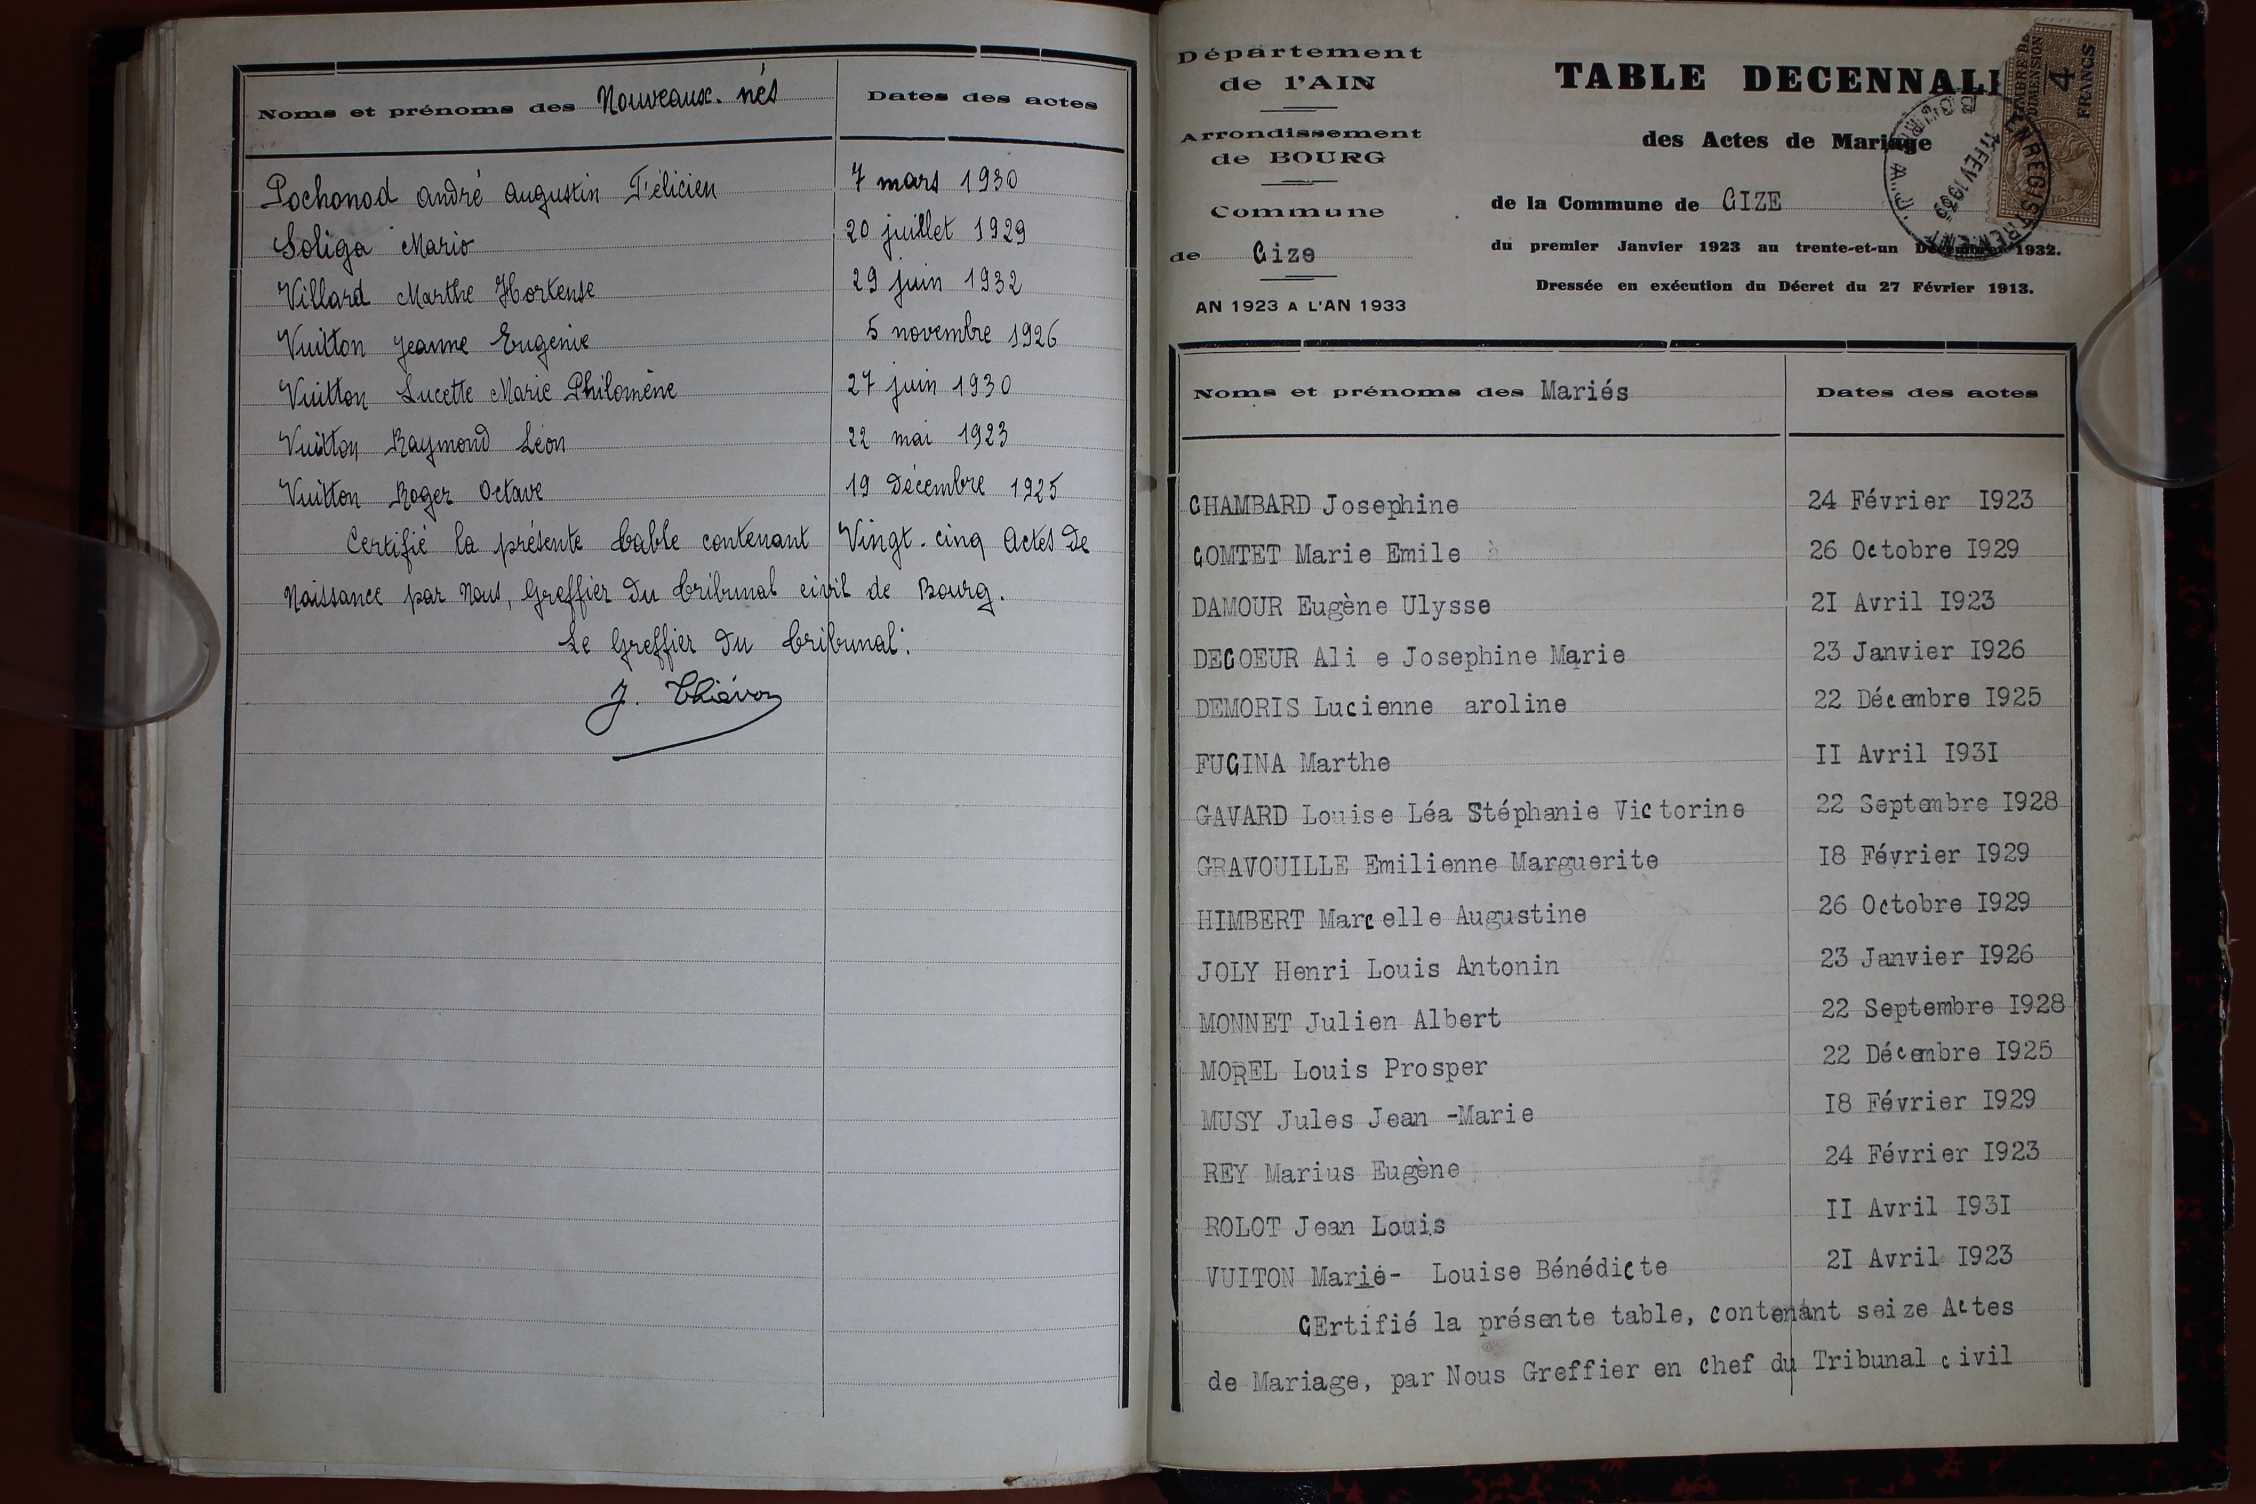 Noms et prénoms des Nouveaux-nés Dates des actes
Pochonod André Augustin Félicien 7 mars 1930
Soliga Mario 20 juillet 1929
Villard Marthe Hortense 29 juin 1932
Vuitton Jeanne Eugénie 5 novembre 1926
Vuitton Lucette Marie Philomène 27 juin 1930
Vuitton Raymond Léon 22 mai 1923
Vuitton Roger Octave 19 Décembre 1925
Certifié la présente table contenant Vingt-cinq Actes de
Naissance par Nous, Greffier du tribunal civil de Bourg.
Le Greffier du tribunal:
J. Thiévon
Département
de l'AIN
Arrondissement
de BOURG
Commune
de Gize
AN 1923 A L'AN 1933
TABLE DECENNALE
des Actes de Mariage
de la Commune de GIZE
du premier Janvier 1923 au trente-et-un Décembre 1932.
Dressée en exécution du Décret du 27 Février 1913.
TIMBRE DE
DIMENSION
4
FRANCS
ENREGISTREMENT
11 FEV 1933
Noms et prénoms des Mariés Dates des actes
CHAMBARD Josephine 24 Février I923
COMTET Marie Emile 26 Octobre I929
DAMOUR Eugène Ulysse 2I Avril I923
DECOEUR Ali e Josephine Marie 23 Janvier I926
DEMORIS Lucienne aroline 22 Décembre I925
FUGINA Marthe II Avril I93I
GAVARD Louise Léa Stéphanie Victorine 22 Septembre I928
GRAVOUILLE Emilienne Marguerite I8 Février I929
HIMBERT Marcelle Augustine 26 Octobre I929
JOLY Henri Louis Antonin 23 Janvier I926
MONNET Julien Albert 22 Septembre I928
MOREL Louis Prosper 22 Décembre I925
MUSY Jules Jean -Marie I8 Février I929
REY Marius Eugène 24 Février I923
ROLOT Jean Louis II Avril I93I
VUITON Marie- Louise Bénédicte 2I Avril I923
CErtifié la présente table, contenant seize Actes
de Mariage, par Nous Greffier en chef du Tribunal civil